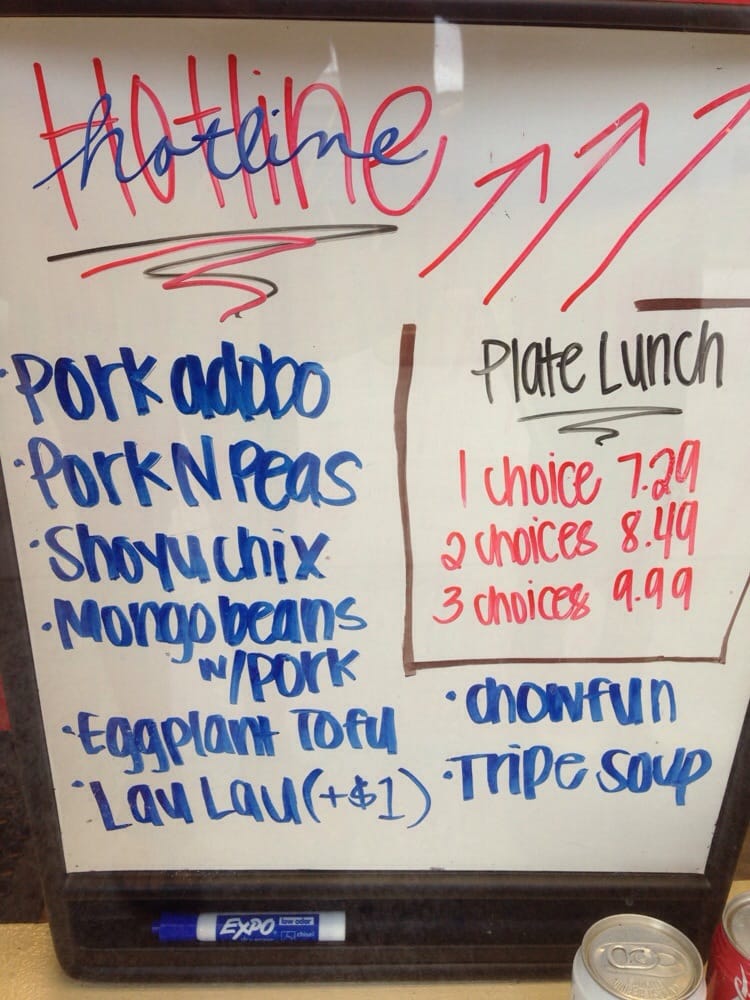 Hotline
hotline
Plate Lunch
1 choice 7.29
2 choices 8.49
3 choices 9.99
· Pork adobo
· Pork N Peas
· Shoyu chix
· Mongo beans
w/pork
· Eggplant Tofu
· Lau Lau (+$1)
· Chowfun
· Tripe soup
EXPO low odor
chisel